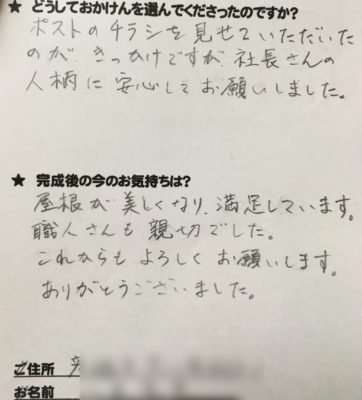 ★ どうしておかけんを選んでくださったのですか?
ポストのチラシを見せていただいた
のが、きっかけですが、社長さんの
人柄に安心してお願いしました。
★ 完成後の今のお気持ちは?
屋根が美しくなり、満足しています。
職人さんも親切でした。
これからもよろしくお願いします。
ありがとうございました。
ご住所
お名前